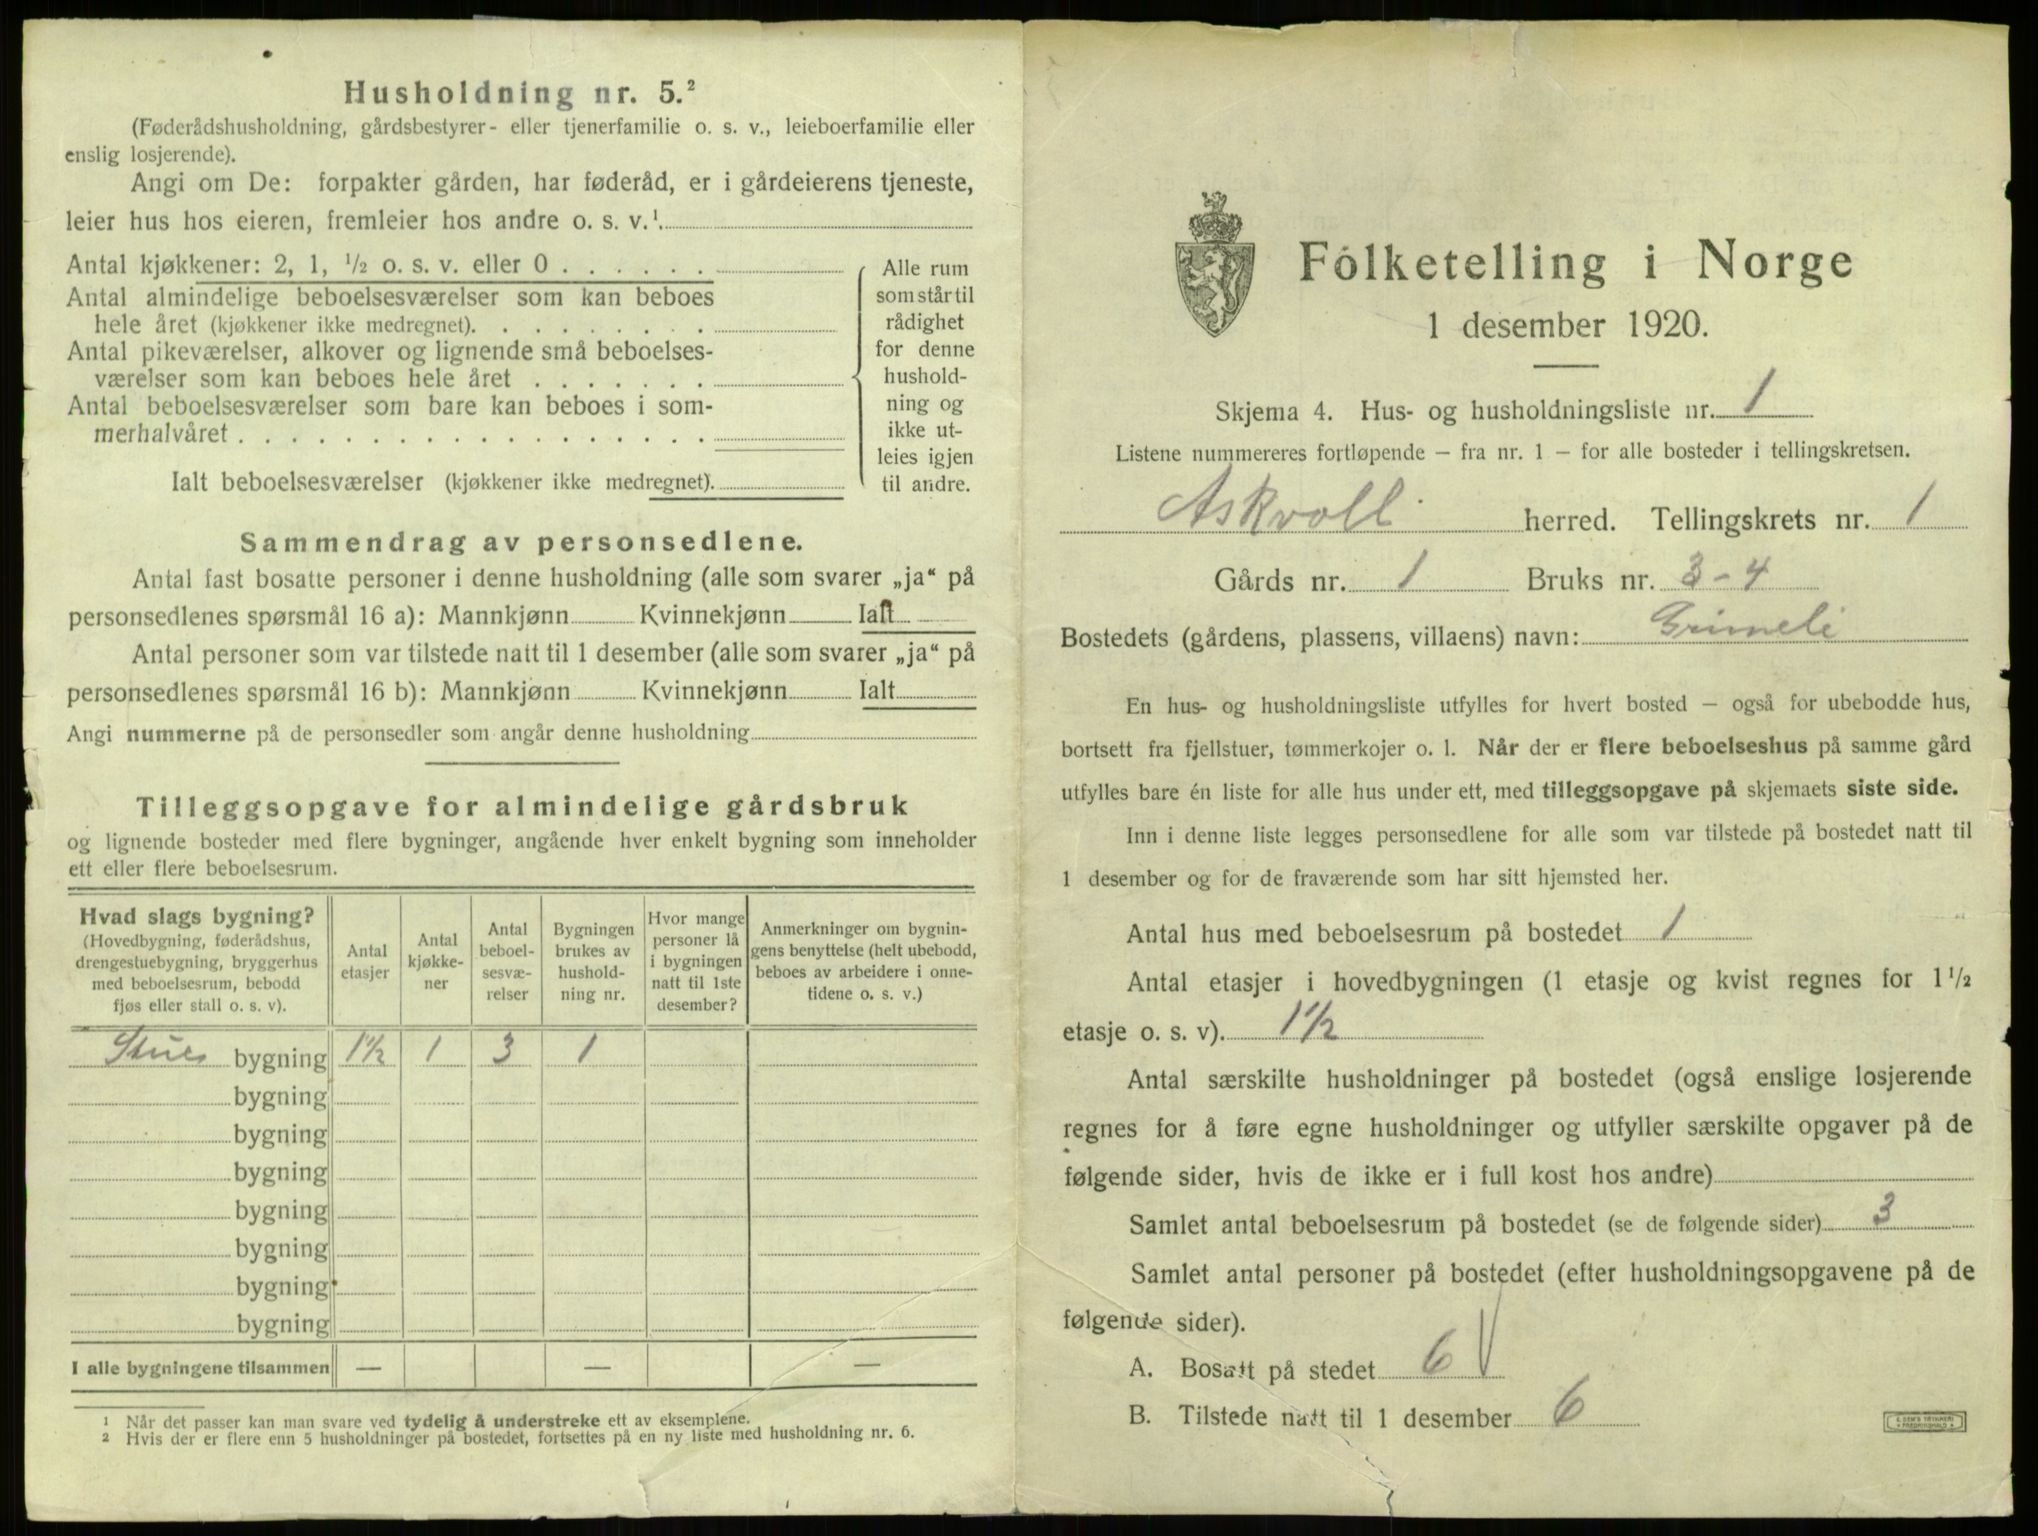 Husholdning nr. 5.²
(Føderådshusholdning, gårdsbestyrer- eller tjenerfamilie o. s. v., leieboerfamilie eller
enslig losjerende).
Angi om De: forpakter gården, har føderåd, er i gårdeierens tjeneste,
leier hus hos eieren, fremleier hos andre o. s. v.¹
Antal kjøkkener: 2, 1, ½ o. s. v. eller 0 . . . . . .
Antal almindelige beboelsesværelser som kan beboes
hele året (kjøkkener ikke medregnet). . . . . . . . .
Antal pikeværelser, alkover og lignende små beboelses-
værelser som kan beboes hele året . . . . . . .
Antal beboelsesværelser som bare kan beboes i som-
merhalvåret . . . . . . . . . . . . . . . . . .
Ialt beboelsesværelser (kjøkkener ikke medregnet).
Alle rum
som står til
rådighet
for denne
hushold-
ning og
ikke ut-
leies igjen
til andre.
Sammendrag av personsedlene.
Antal fast bosatte personer i denne husholdning (alle som svarer „ja“ på
personsedlenes spørsmål 16 a): Mannkjønn Kvinnekjønn Ialt
Antal personer som var tilstede natt til 1 desember (alle som svarer „ja“ på
personsedlenes spørsmål 16 b): Mannkjønn Kvinnekjønn Ialt
Angi nummerne på de personsedler som angår denne husholdning
Tilleggsopgave for almindelige gårdsbruk
og lignende bosteder med flere bygninger, angående hver enkelt bygning som inneholder
ett eller flere beboelsesrum.
Hvad slags bygning?
(Hovedbygning, føderådshus,
drengestuebygning, bryggerhus
med beboelsesrum, bebodd
fjøs eller stall o. s. v).
Antal
etasjer
Antal
kjøkke-
ner
Antal
beboel-
sesvæ-
relser
Bygningen
brukes av
hushold-
ning nr.
Hvor mange
personer lå
i bygningen
natt til 1ste
desember?
Anmerkninger om bygnin-
gens benyttelse (helt ubebodd,
beboes av arbeidere i onne-
tidene o. s. v.)
Stues bygning 1½ 1 3 1
bygning
bygning
bygning
bygning
bygning
bygning
bygning
I alle bygningene tilsammen — — —
1 Når det passer kan man svare ved tydelig å understreke ett av eksemplene.
2 Hvis der er flere enn 5 husholdninger på bostedet, fortsettes på en ny liste med husholdning nr. 6.
Folketelling i Norge
1 desember 1920.
Skjema 4. Hus- og husholdningsliste nr. 1
Listene nummereres fortløpende — fra nr. 1 — for alle bosteder i tellingskretsen.
Askvoll herred. Tellingskrets nr. 1
Gårds nr. 1 Bruks nr. 3-4
Bostedets (gårdens, plassens, villaens) navn: Grimeli
En hus- og husholdningsliste utfylles for hvert bosted — også for ubebodde hus,
bortsett fra fjellstuer, tømmerkojer o. l. Når der er flere beboelseshus på samme gård
utfylles bare én liste for alle hus under ett, med tilleggsopgave på skjemaets siste side.
Inn i denne liste legges personsedlene for alle som var tilstede på bostedet natt til
1 desember og for de fraværende som har sitt hjemsted her.
Antal hus med beboelsesrum på bostedet 1
Antal etasjer i hovedbygningen (1 etasje og kvist regnes for 1½
etasje o. s. v). 1½
Antal særskilte husholdninger på bostedet (også enslige losjerende
regnes for å føre egne husholdninger og utfyller særskilte opgaver på de
følgende sider, hvis de ikke er i full kost hos andre)
Samlet antal beboelsesrum på bostedet (se de følgende sider) 3
Samlet antal personer på bostedet (efter husholdningsopgavene på de
følgende sider).
A. Bosatt på stedet 6 V
B. Tilstede natt til 1 desember 6